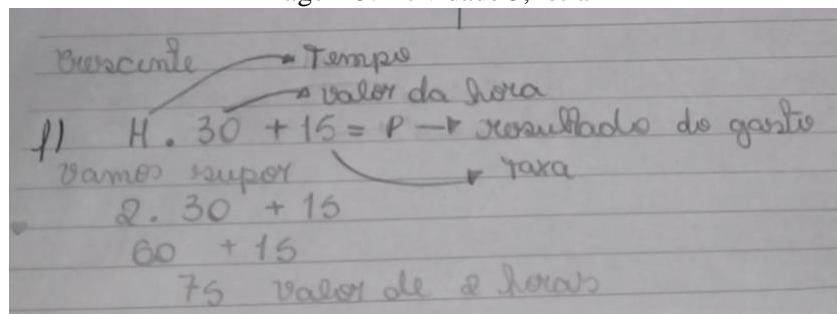 crescente
Tempo
valor da hora
f) H . 30 + 15 = P → resultado do gasto
vamos supor
Taxa
2 . 30 + 15
60 + 15
75 valor de 2 horas